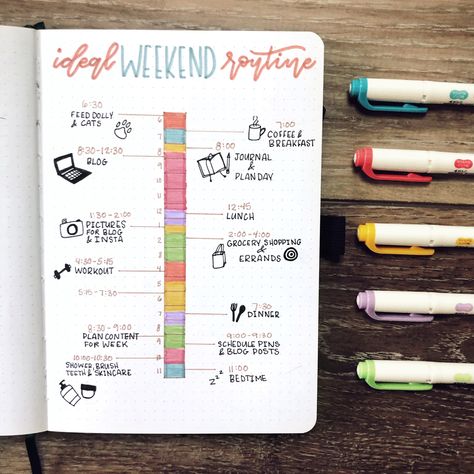 ideal WEEKEND routine
6:30
FEED DOLLY
& CATS
7:00
COFFEE &
BREAKFAST
8:00
JOURNAL
& PLAN DAY
8:30-12:30
BLOG
12:45
LUNCH
1:30-2:00
PICTURES
FOR BLOG
& INSTA
2:00-4:00
GROCERY SHOPPING
& ERRANDS
4:30-5:15
WORKOUT
5:15-7:30
7:30
DINNER
8:30-9:00
PLAN CONTENT
FOR WEEK
9:00-9:30
SCHEDULE PINS
& BLOG POSTS
10:00-10:30
SHOWER, BRUSH
TEETH & SKINCARE
11:00
BEDTIME
zzz
6
7
8
9
10
11
12
1
2
3
4
5
6
7
8
9
10
11